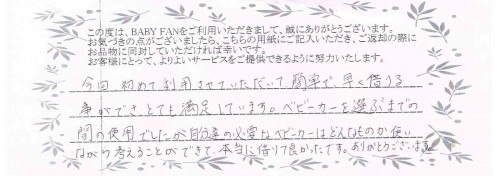 この度は、BABY FANをご利用いただきまして、誠にありがとうございます。
お気づきの点がございましたら、こちらの用紙にご記入いただき、ご返却の際に
お品物に同封していただければ幸いです。
お客様にとって、よりよいサービスをご提供できるように努力いたします。
今回初めて利用させていただいて、簡単で、早く借りる
事ができ、とても満足しています。ベビーカーを選ぶまでの
間の使用でしたが自分達の必要なベビーカーはどんなものか使い
ながら考えることができて、本当に借りて良かったです。ありがとうございます